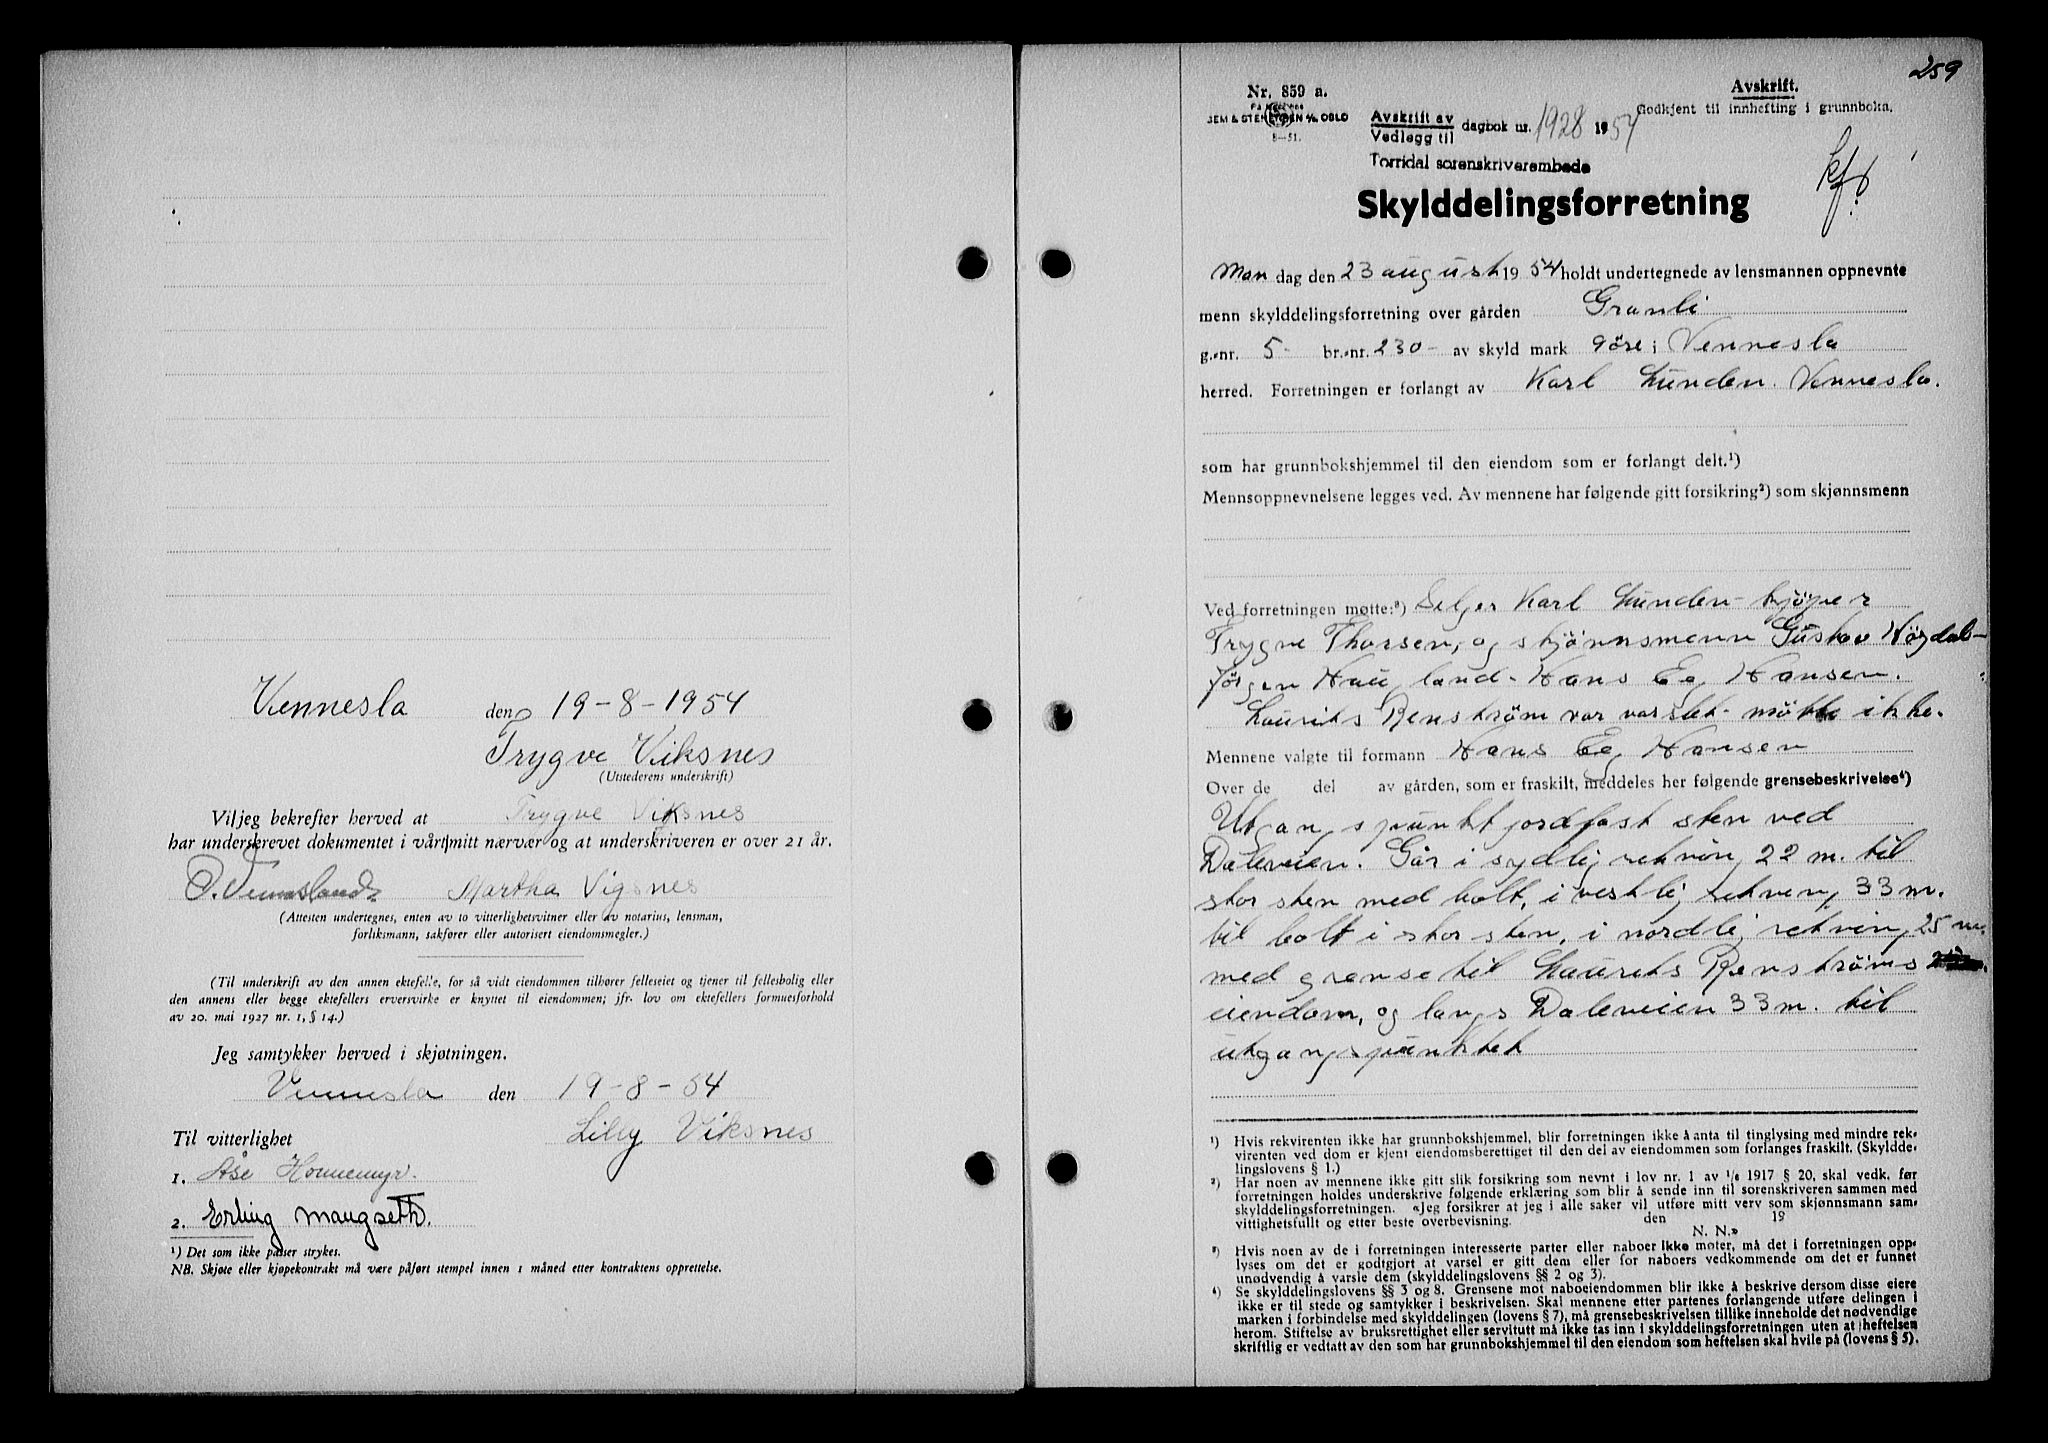 Vennesla den 19-8-1954
Trygve Viksnes
(Utstederens underskrift)
Vi/jeg bekrefter herved at Trygve Viksnes
har underskrevet dokumentet i vårt/mitt nærvær og at underskriveren er over 21 år.
Martha Vigsnes
(Attesten undertegnes, enten av to vitterlighetsvitner eller av notarius, lensman,
forliksmann, sakfører eller autorisert eiendomsmegler.)
(Til underskrift av den annen ektefelle, for så vidt eiendommen tilhører felleseiet og tjener til fellesbolig eller
den annens eller begge ektefellers ervervsvirke er knyttet til eiendommen; jfr. lov om ektefellers formuesforhold
av 20. mai 1927 nr. 1, § 14.)
Jeg samtykker herved i skjøtningen.
Vennesla den 19-8-54
Til vitterlighet Lilly Viksnes
1. Åse Honnemyr.
2. Erling Maugseth.
¹) Det som ikke passer strykes.
NB. Skjøte eller kjøpekontrakt må være påført stempel innen 1 måned etter kontraktens opprettelse.
259
Nr. 859 a.
SEM & STENERSEN A/S OSLO
8—51.
Avskrift av
Vedlegg til dagbok nr. 1928 1954
Torridal sorenskriverembede
Avskrift.
Godkjent til innhefting i grunnboka.
Skylddelingsforretning
Man dag den 23 august 1954 holdt undertegnede av lensmannen oppnevnte
menn skylddelingsforretning over gården Granli
g.-nr. 5- br.-nr. 230- av skyld mark 9 öre i Vennesla
herred. Forretningen er forlangt av Karl Lunden. Vennesla.
som har grunnbokshjemmel til den eiendom som er forlangt delt.¹)
Mennsoppnevnelsene legges ved. Av mennene har følgende gitt forsikring²) som skjønnsmenn
Ved forretningen møtte:³) Selger Karl Lunden- kjöper
Trygve Thorsen, og skjönnsmenn Gustav Högdal-
Jörgen Haugland- Hans Eg Hansen.
Laurits Renström var varslet- møtte ikke.
Mennene valgte til formann Hans Eg Hansen
Over de del av gården, som er fraskilt, meddeles her følgende grensebeskrivelse⁴)
Utgangspunkt jordfast sten ved
Daleveien. Går i sydlig retning 22 m. til
stor sten med bolt, i vestlig retning 33 m.
til bolt i stor sten, i nordlig retning 25 m.
med grense til Laurits Renströms
eiendom, og langs Daleveien 33 m. til
utgangspunktet
¹) Hvis rekvirenten ikke har grunnbokshjemmel, blir forretningen ikke å anta til tinglysing med mindre rek-
virenten ved dom er kjent eiendomsberettiget til den del av eiendommen som forlanges fraskilt. (Skyldde-
lingslovens § 1.)
²) Har noen av mennene ikke gitt slik forsikring som nevnt i lov nr. 1 av 1/6 1917 § 20, skal vedk. før
forretningen holdes underskrive følgende erklæring som blir å sende inn til sorenskriveren sammen med
skylddelingsforretningen. «Jeg forsikrer at jeg i alle saker vil utføre mitt verv som skjønnsmann sam-
vittighetsfullt og etter beste overbevisning. den 19
N. N.»
³) Hvis noen av de i forretningen interesserte parter eller naboer ikke møter, må det i forretningen opp-
lyses om det er godtgjort at varsel er gitt dem eller for naboers vedkommende om det er funnet
unødvendig å varsle dem (skylddelingslovens §§ 2 og 3).
⁴) Se skylddelingslovens §§ 3 og 8. Grensene mot naboeiendommen blir ikke å beskrive dersom disse eiere
ikke er til stede og samtykker i beskrivelsen. Skal mennene etter partenes forlangende utføre delingen i
marken i forbindelse med skylddelingen (lovens § 7), må grensebeskrivelsen tillike inneholde det nødvendige
herom. Stiftelse av bruksrettighet eller servitutt må ikke tas inn i skylddelingsforretningen uten at heftelsen
skriftlig er vedtatt av den som har grunnbokshjemmel til den eiendom som heftelsen skal hvile på (lovens § 5).